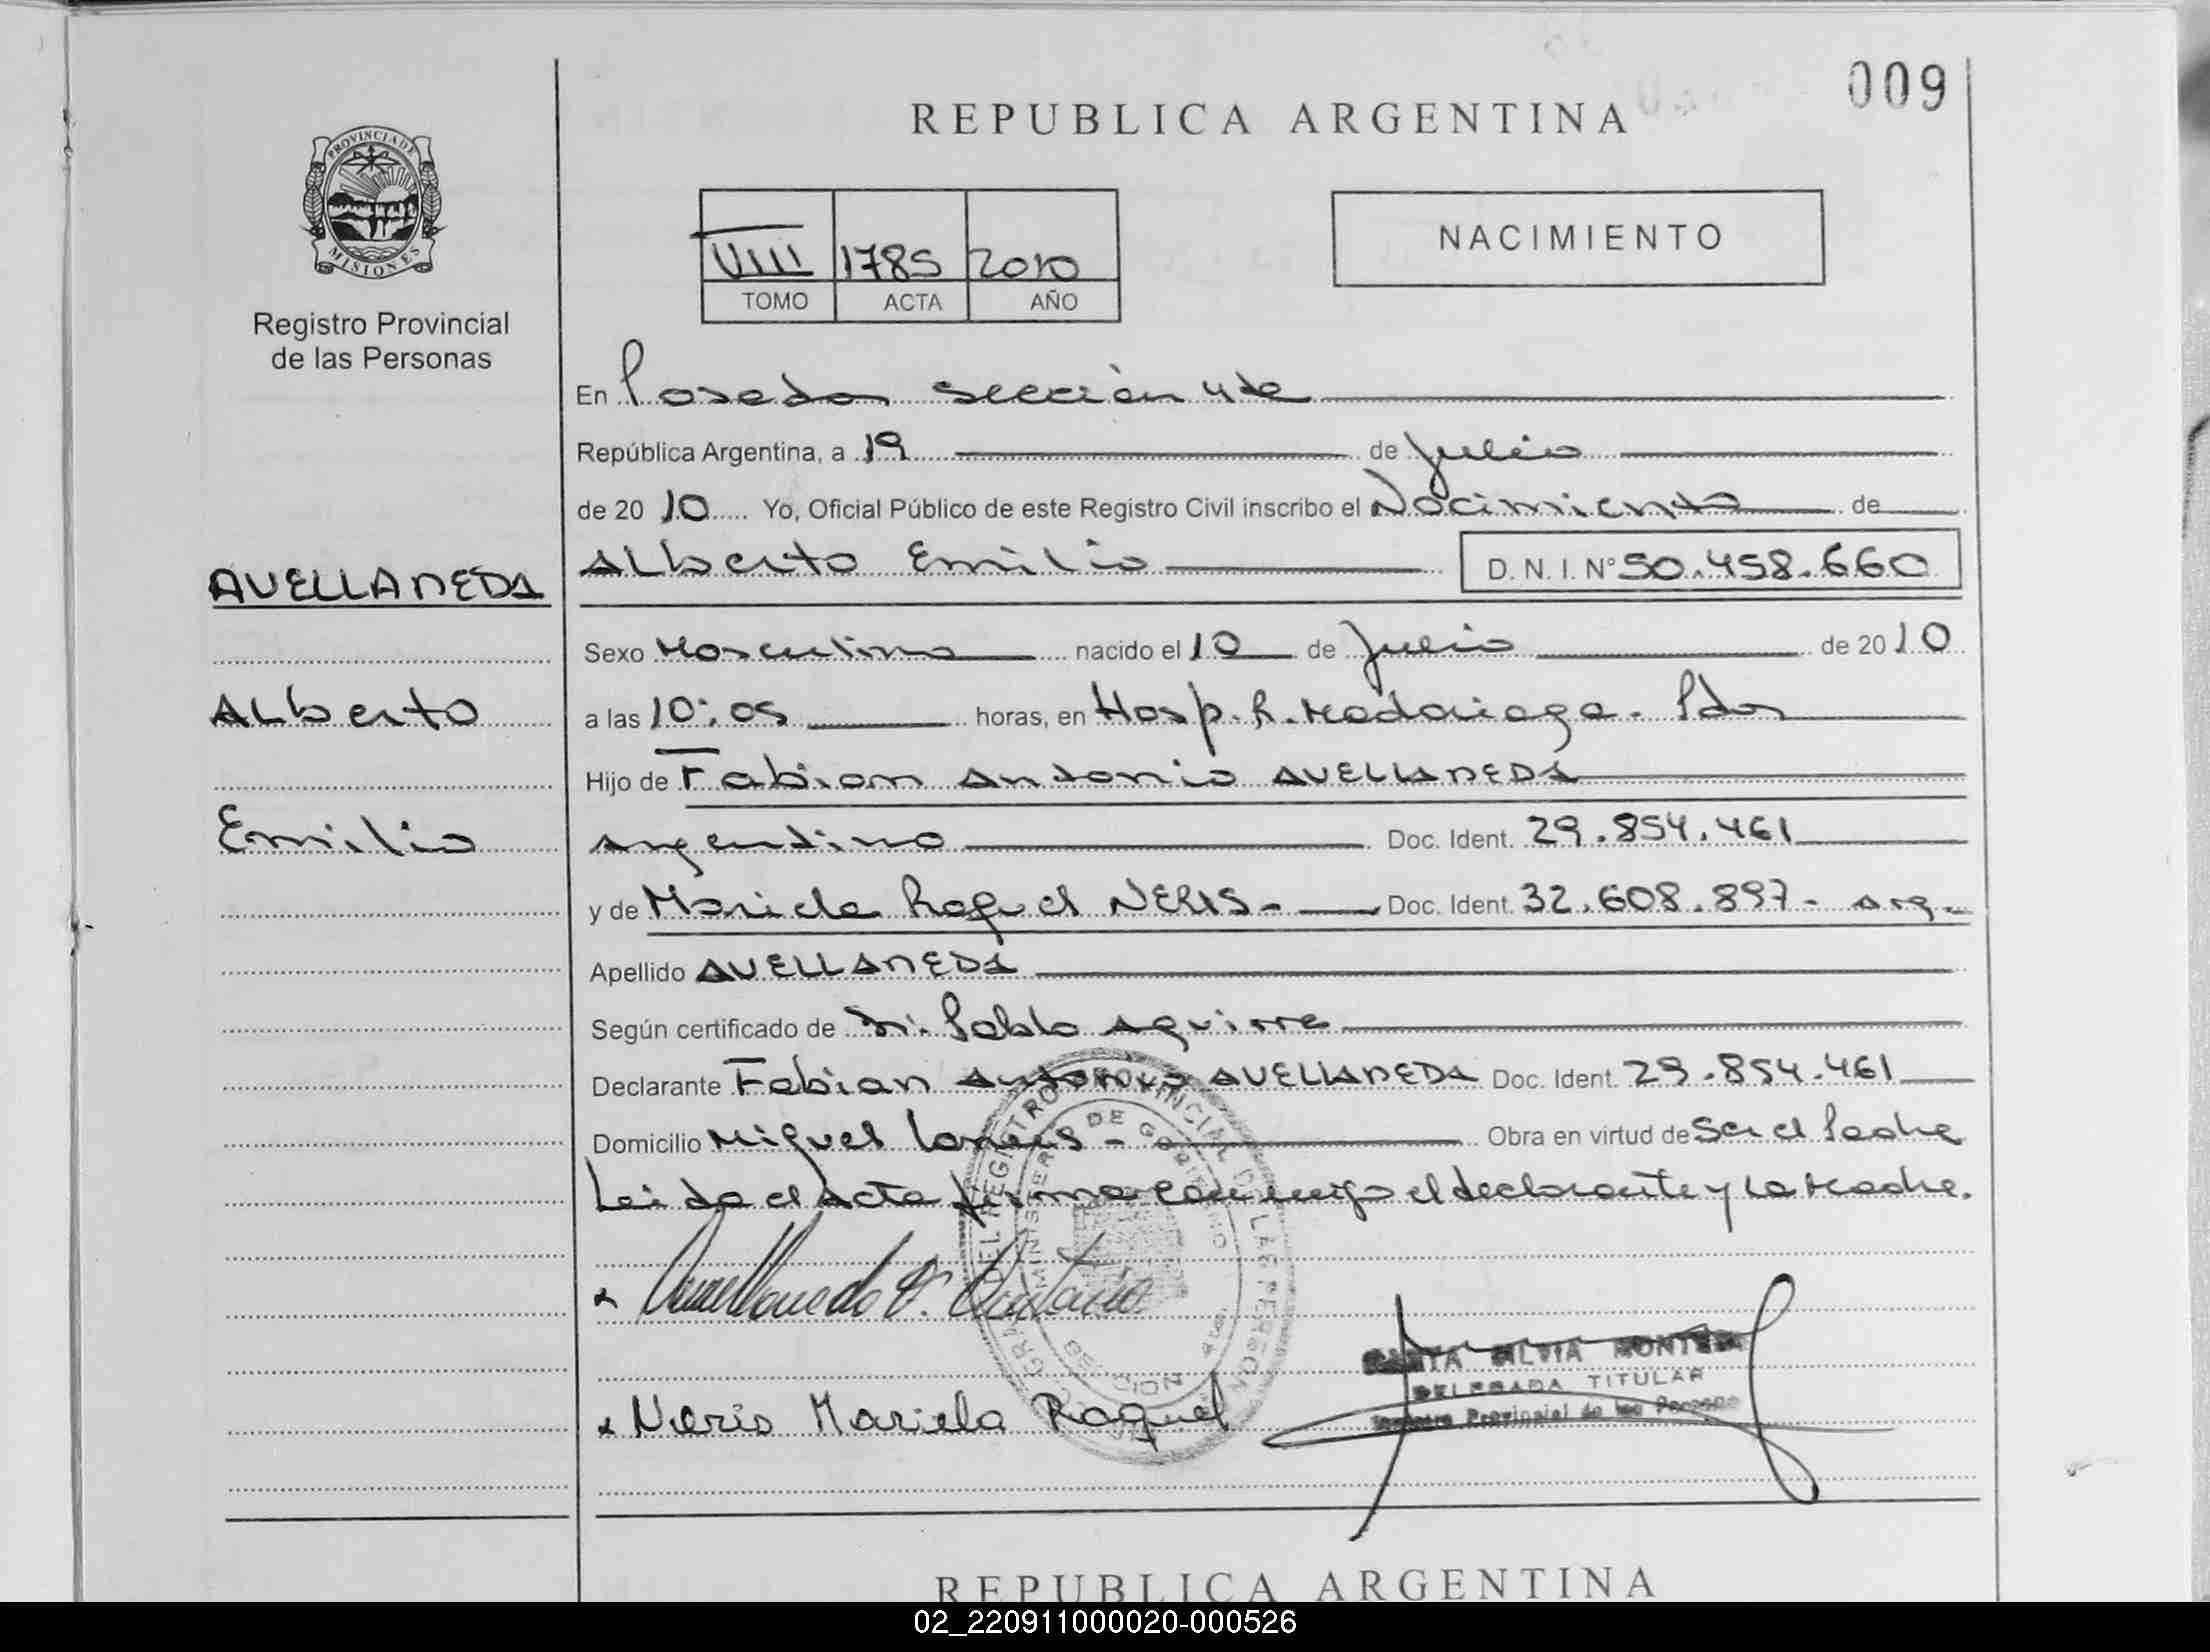 009
REPUBLICA ARGENTINA
PROVINCIA DE
MISIONES
Registro Provincial
de las Personas
VIII 1785 2010
TOMO ACTA AÑO
NACIMIENTO
En Posadas sección 4ta
República Argentina, a 19 de Julio
de 2010 Yo, Oficial Público de este Registro Civil inscribo el Nacimiento de
AVELLANEDA
Alberto Emilio D. N. I. N° 50.458.660
Sexo Masculino nacido el 10 de Julio de 2010
Alberto
a las 10:05 horas, en Hosp. R. Madariaga. Pdas
Hijo de Fabian Antonio AVELLANEDA
Emilio
argentino Doc. Ident. 29.854.461
y de Mariela Raquel NERIS - Doc. Ident. 32.608.897 - arg.
Apellido AVELLANEDA
Según certificado de Dr. Pablo Aguirre
Declarante Fabian Antonio AVELLANEDA Doc. Ident. 29.854.461
Domicilio Miguel Lanus - Obra en virtud de Ser el Padre
Leida el acta firma conmigo el declarante y la Madre.
Avellaneda F. Antonio
SILVIA
DELEGADA TITULAR
Registro Provincial de las Personas
Neris Mariela Raquel
REPUBLICA ARGENTINA
02_220911000020-000526